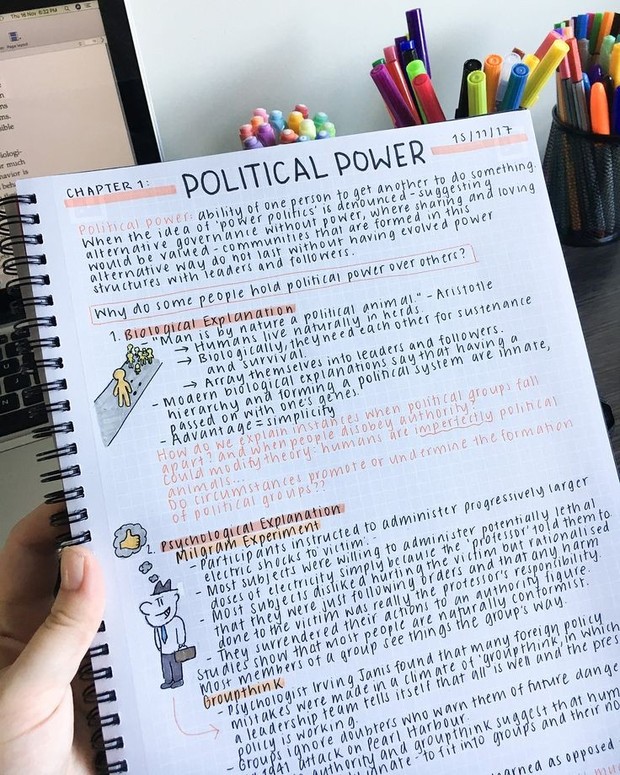 Thu 16 Nov 6:32 PM
CHAPTER 1:
POLITICAL POWER
15/11/17
Political power: ability of one person to get another to do something.
When the idea of 'power politics' is denounced - suggesting
alternative governance without power, where sharing and loving
would be valued - communities that are formed in this
alternative way do not last without having evolved power
structures with leaders and followers.
Why do some people hold political power over others?
1. Biological Explanation
- "Man is by nature a political animal" - Aristotle
→ Humans live naturally in herds.
→ Biologically, they need each other for sustenance
and survival.
→ Array themselves into leaders and followers.
- Modern biological explanations say that having a
hierarchy and forming a political system are innate,
passed on with one's genes.
- Advantage = simplicity
How do we explain instances when political groups fall
apart? and when people disobey authority?
Could modify theory: humans are imperfectly political
animals...
Do circumstances promote or undermine the formation
of political groups??
2. Psychological Explanation
Milgram Experiment
- Participants instructed to administer progressively larger
electric shocks to victim.
- Most subjects were willing to administer potentially lethal
doses of electricity simply because the 'professor' told them to
- Most subjects disliked hurting the victim but rationalised
that they were just following orders and that any harm
done to the victim was really the professor's responsibility.
- They surrendered their actions to an authority figure.
Studies show that most people are naturally conformist.
Most members of a group see things the group's way.
Groupthink
- Psychologist Irving Janis found that many foreign policy
mistakes were made in a climate of 'groupthink', in which
a leadership team tells itself that all is well and the pres
policy is working.
- Groups ignore doubters who warn them of future dange
attack on Pearl Harbour.
authority and groupthink suggest that hum
innate - to fit into groups and their no
learned as opposed